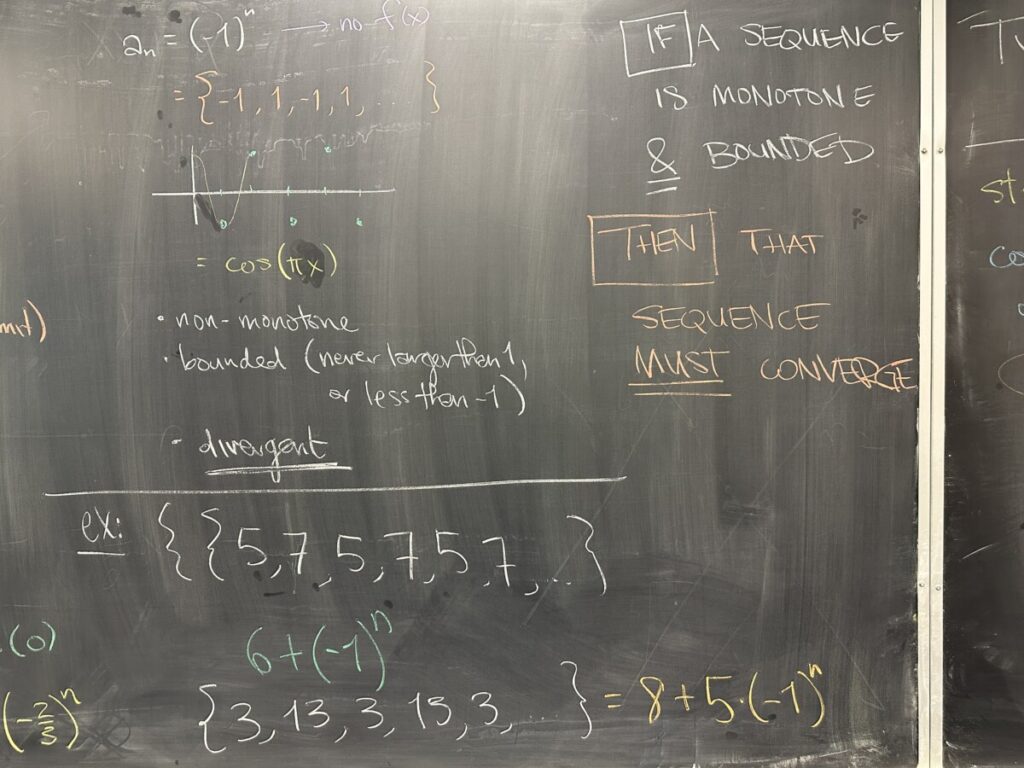 aₙ = (-1)ⁿ → no f(x)
= {-1, 1, -1, 1, ... }
= cos(πx)
• non-monotone
• bounded (never larger than 1,
or less than -1)
• divergent
ex: { {5, 7, 5, 7, 5, 7, ... }
6+(-1)ⁿ
{3, 13, 3, 13, 3, ... } = 8+5·(-1)ⁿ
(0)
(-2/3)ⁿ
IF A SEQUENCE
IS MONOTONE
& BOUNDED
THEN THAT
SEQUENCE
MUST CONVERGE